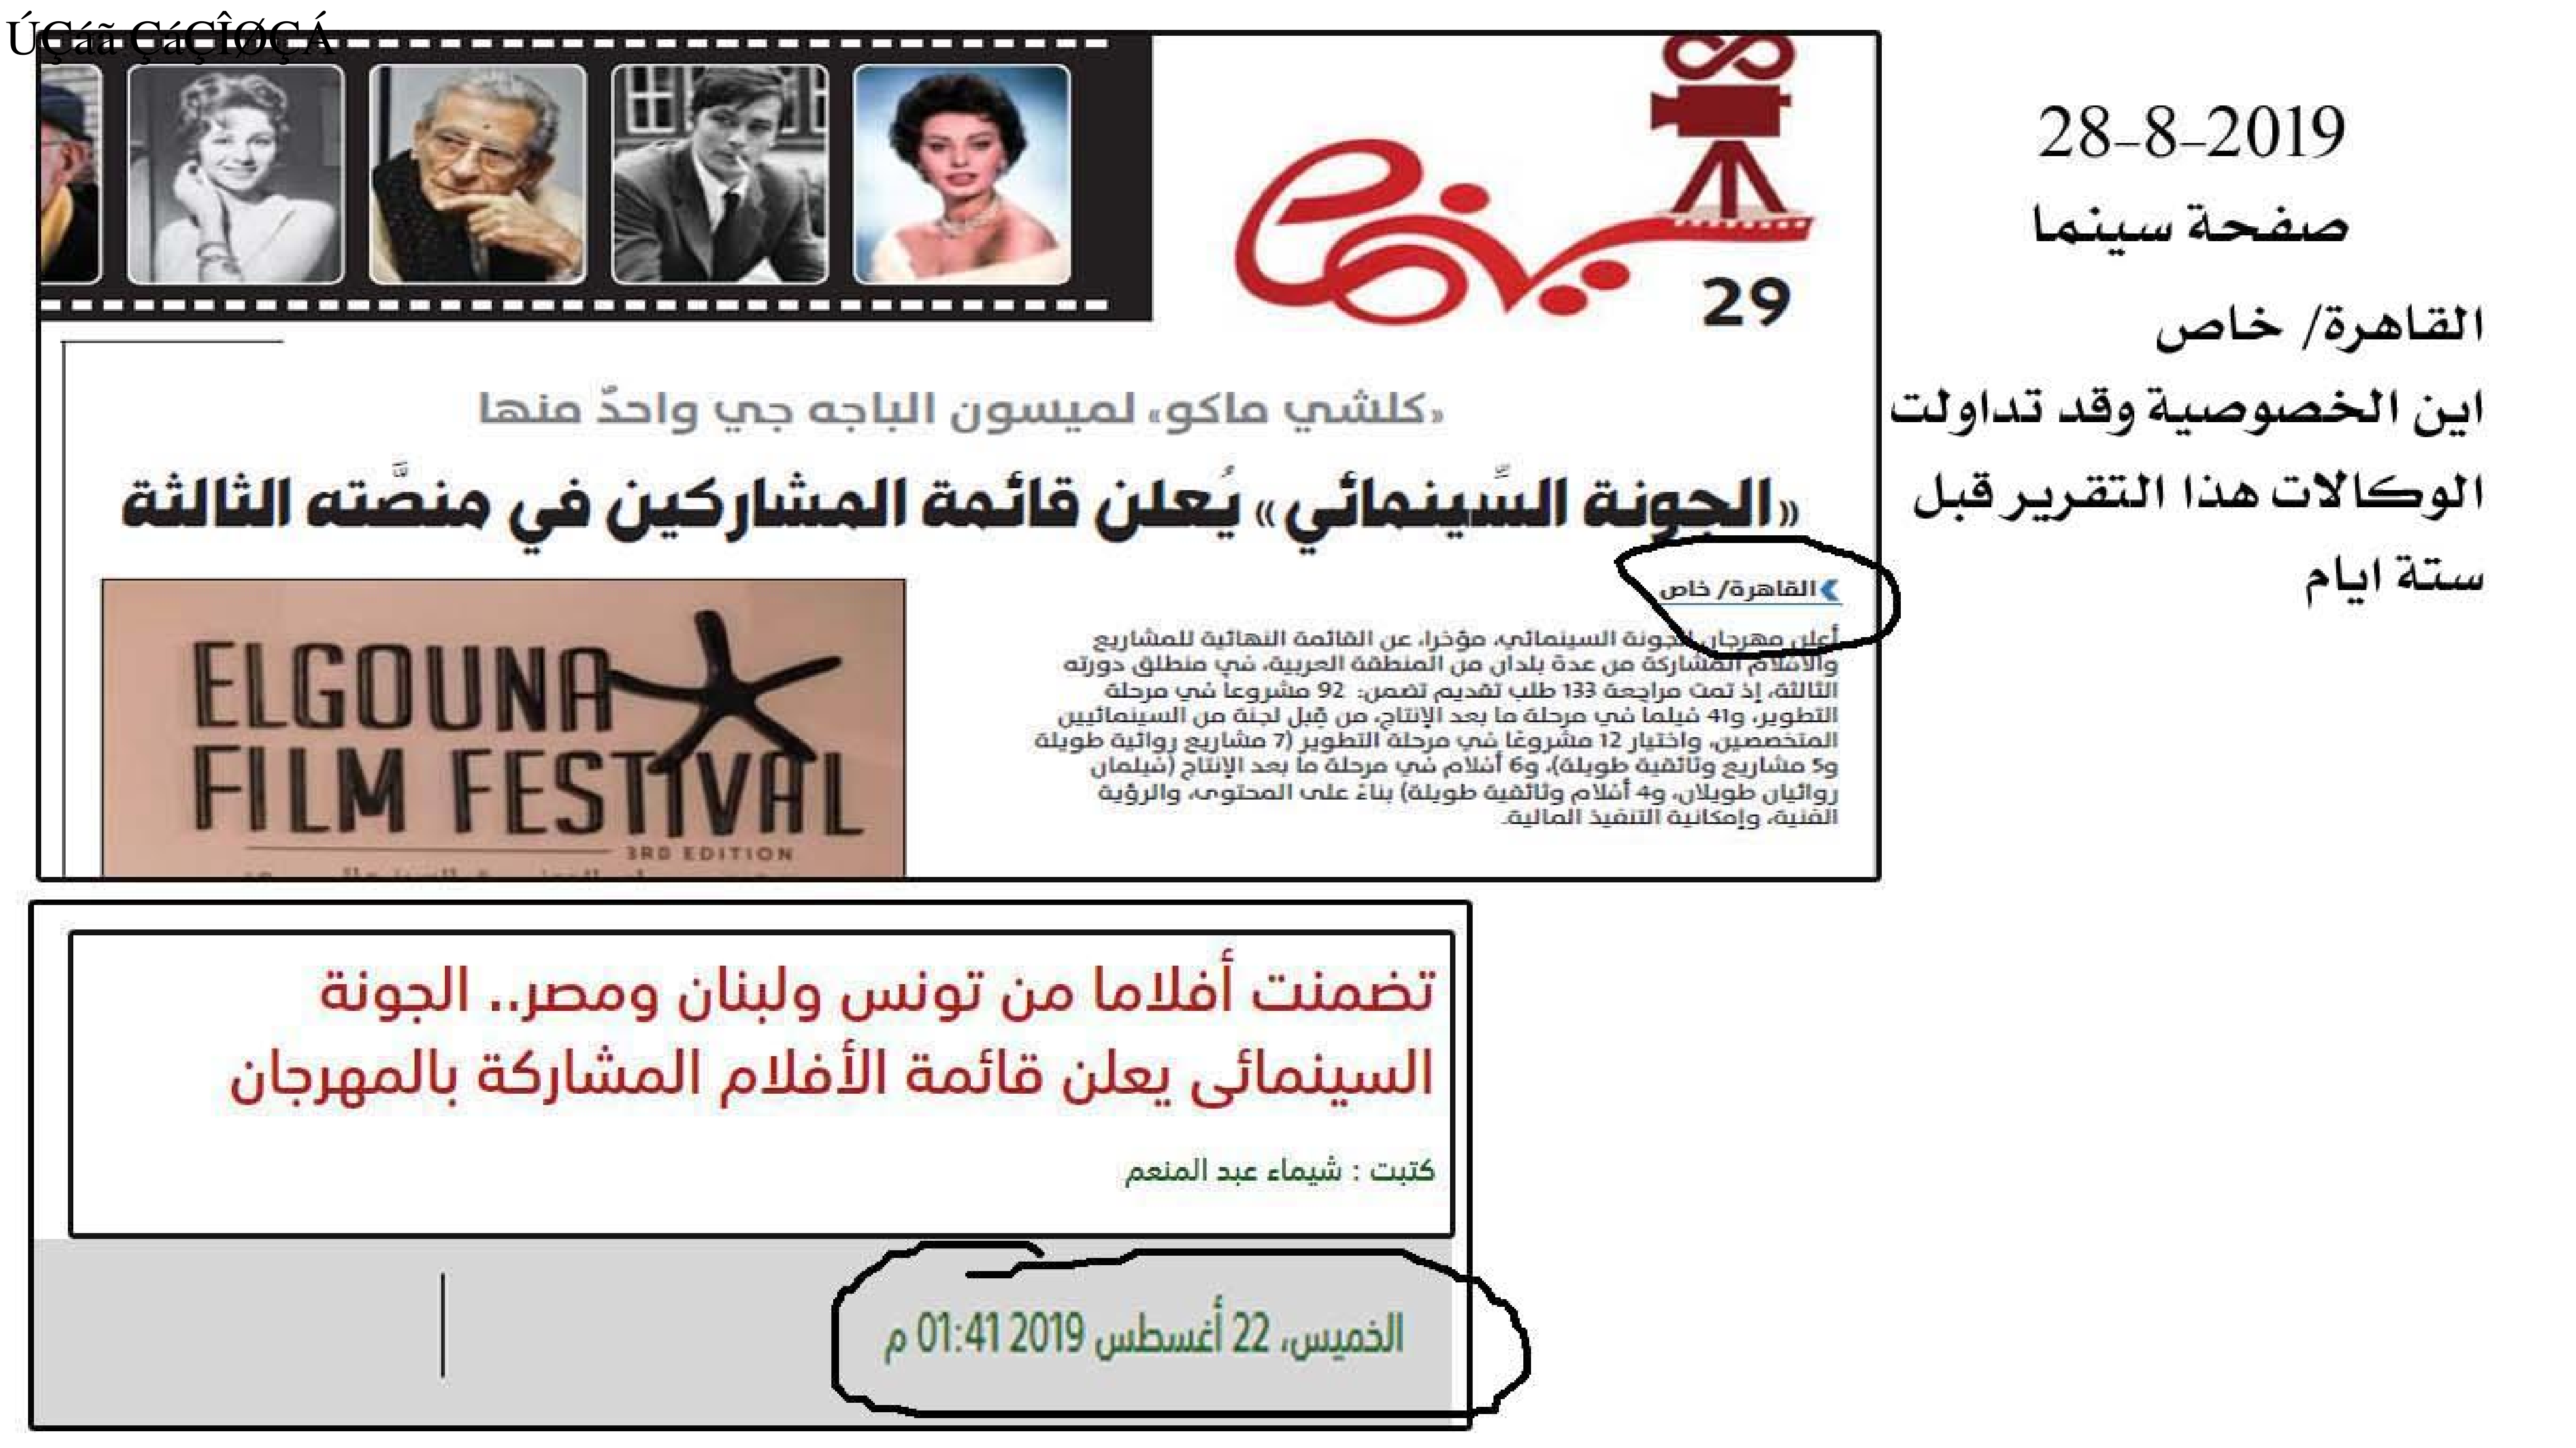 ÚÇáã ÇáÇÎØÇÁ
سينما
29
28-8-2019
صفحة سينما
القاهرة/ خاص
اين الخصوصية وقد تداولت
الوكالات هذا التقرير قبل
ستة ايام
«كلشي ماكو» لميسون الباجه جي واحدٌ منها
«الجونة السِّينمائي» يُعلن قائمة المشاركين في منصَّته الثالثة
القاهرة/ خاص
أعلن مهرجان الجونة السينمائي، مؤخرا، عن القائمة النهائية للمشاريع
والأفلام المشاركة من عدة بلدان من المنطقة العربية، في منطلق دورته
الثالثة، إذ تمت مراجعة 133 طلب تقديم تضمن: 92 مشروعاً في مرحلة
التطوير، و41 فيلما في مرحلة ما بعد الإنتاج، من قِبل لجنة من السينمائيين
المتخصصين، واختيار 12 مشروعًا في مرحلة التطوير (7 مشاريع روائية طويلة
و5 مشاريع وثائقية طويلة)، و6 أفلام في مرحلة ما بعد الإنتاج (فيلمان
روائيان طويلان، و4 أفلام وثائقية طويلة) بناءً على المحتوى، والرؤية
الفنية، وإمكانية التنفيذ المالية.
ELGOUNA
FILM FESTIVAL
3RD EDITION
تضمنت أفلاما من تونس ولبنان ومصر.. الجونة
السينمائى يعلن قائمة الأفلام المشاركة بالمهرجان
كتبت : شيماء عبد المنعم
الخميس، 22 أغسطس 2019 01:41 م